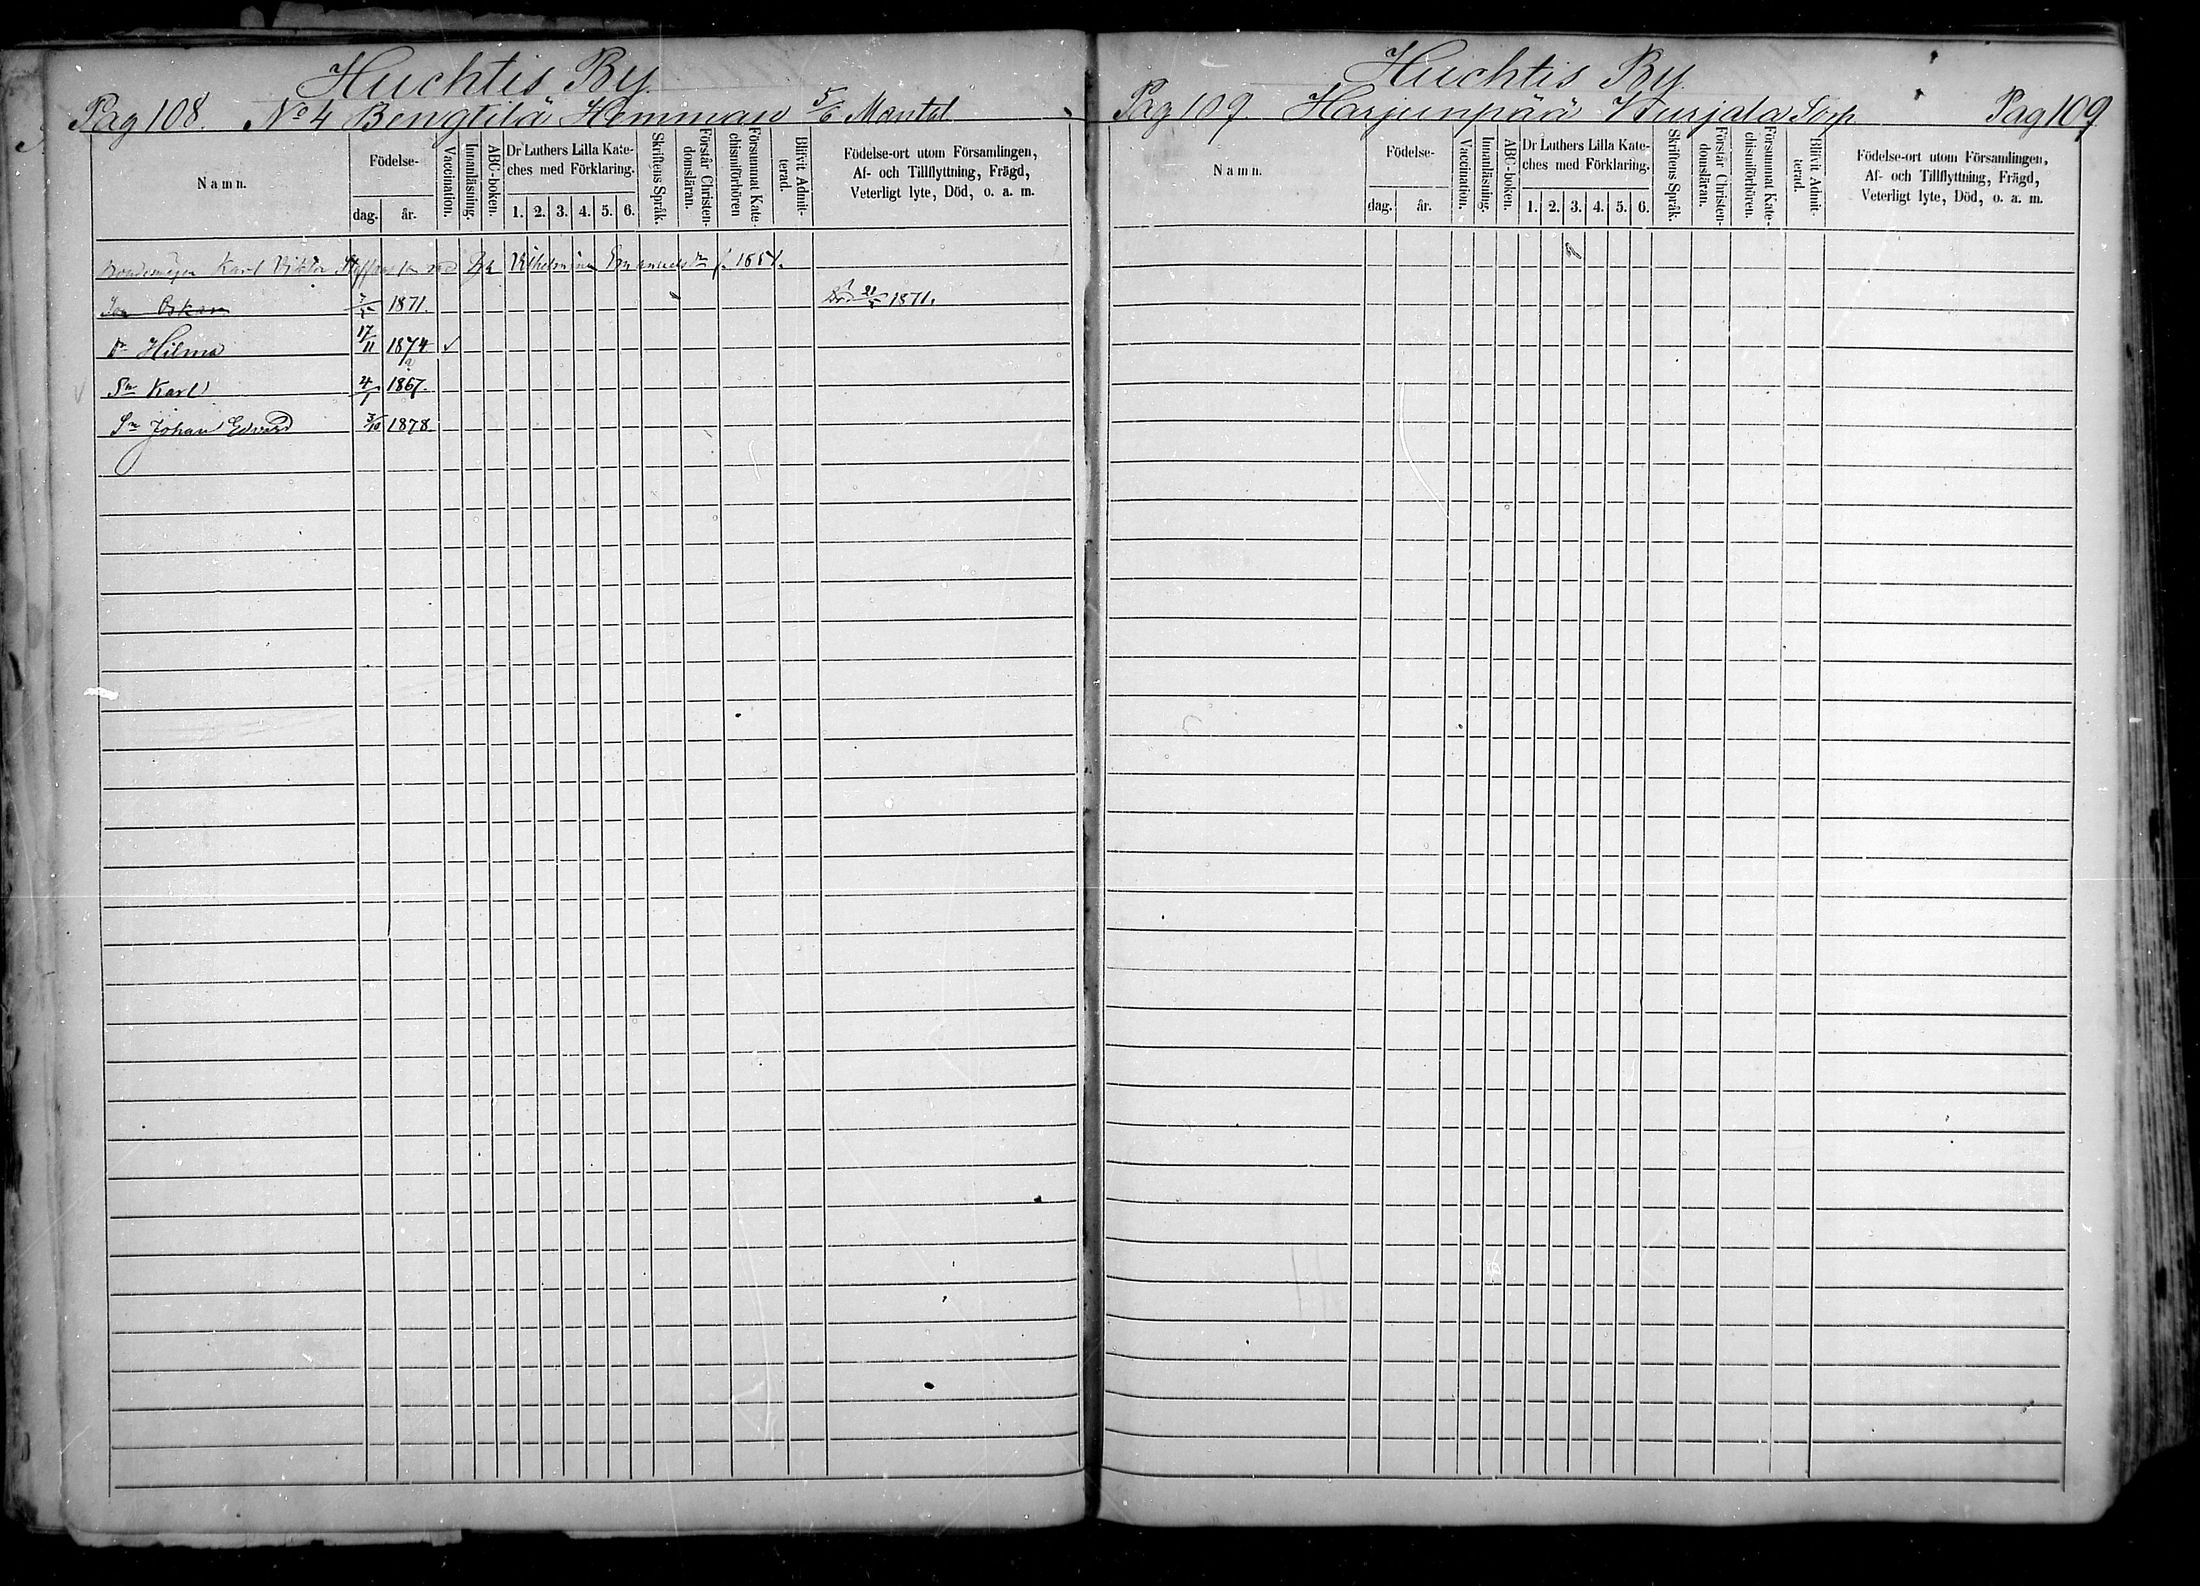 Huchtis By.
Pag 108. No 4 Bengtilä Hemman 5/6 Mantal
Namn.
Födelse-
dag. år.
Vaccination.
Innanläsning.
ABC-boken.
Dr Luthers Lilla Kate-
ches med Förklaring.
1. 2. 3. 4. 5. 6.
Skriftens Språk.
Förstår Christen-
domsläran.
Försummat Kate-
chismiförhören
Blifvit Admit-
terad.
Födelse-ort utom Församlingen,
Af- och Tillflyttning, Frägd,
Veterligt lyte, Död, o. a. m.
Karl Viktor Vilhelmina f. 1851.
Oskar 1871. 1871.
Hilma 17/11 1874 ✓
Sn Karl 4/1 1867.
Sn Johan Edvard 3/10 1878.
Huchtis By.
Pag 109. Harjunpää Wurjala Torp Pag 109
Namn.
Födelse-
dag. år.
Vaccination.
Innanläsning.
ABC-boken.
Dr Luthers Lilla Kate-
ches med Förklaring.
1. 2. 3. 4. 5. 6.
Skriftens Språk.
Förstår Christen-
domsläran.
Försummat Kate-
chismiförhören.
Blifvit Admit-
terad.
Födelse-ort utom Församlingen,
Af- och Tillflyttning, Frägd,
Veterligt lyte, Död, o. a. m.